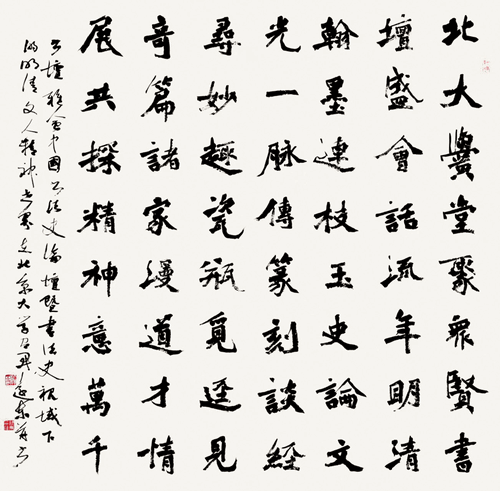 北大黌堂聚衆賢書
壇盛會話流年明清
翰墨連枝玉史論文
光一脈傳篆刻談經
尋妙趣瓷瓶覓逕見
奇篇諸家漫道才情
展共探精神意萬千
書壇雅會中國書法史論壇暨書法史視域下
的明清文人精神世界在北京大學召開